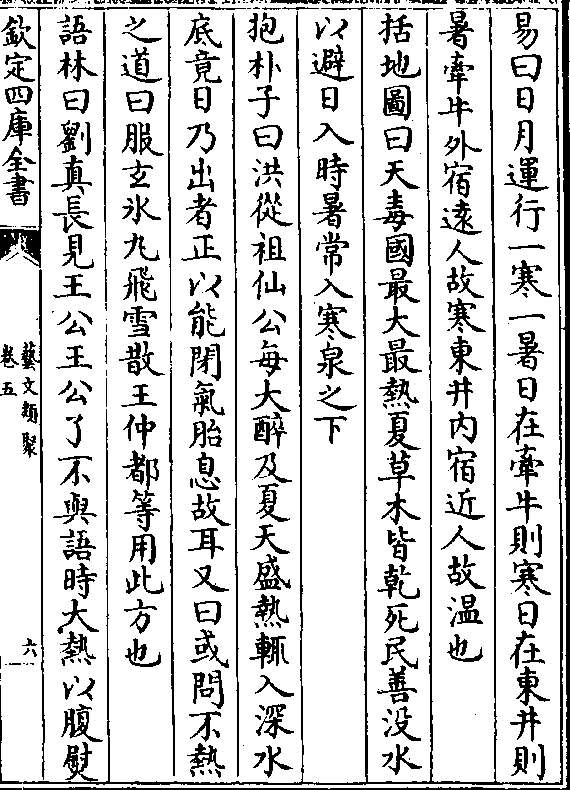 易曰日月運行一寒一暑日在牽牛則寒日在東井則
暑牽牛外宿逺人故寒東井内宿近人故温也
括地圖曰天毒國最大最熱夏草木皆乾死民善没水
以避日入時暑常入寒泉之下
抱朴子曰洪從祖仙公每大醉及夏天盛熱輒入深水
底竟日乃出者正以能閉氣胎息故耳又曰或問不熱
之道曰服玄氷丸飛雪散王仲都等用此方也
語林曰劉真長見王公王公了不與語時大熱以腹熨
欽定四庫全書
藝文類聚
卷五
六